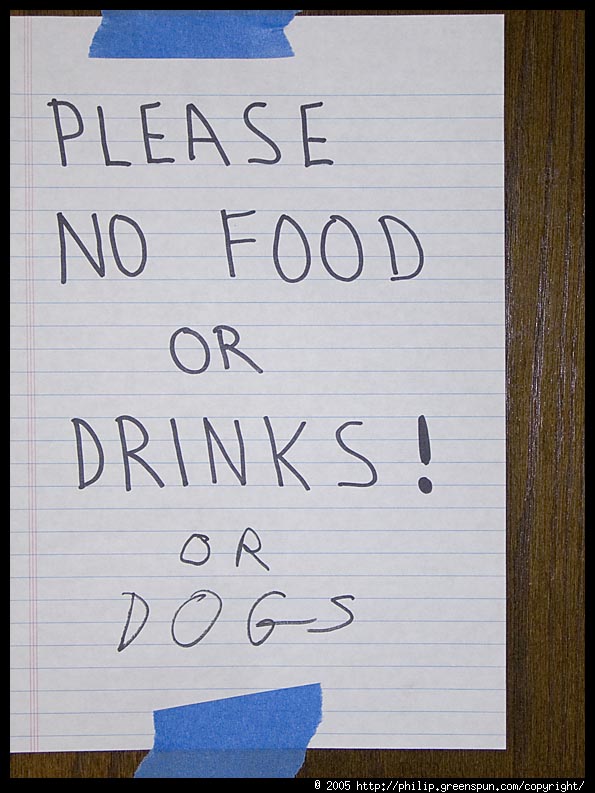 PLEASE
NO FOOD
OR
DRINKS!
OR
DOGS
© 2005 http://philip.greenspun.com/copyright/